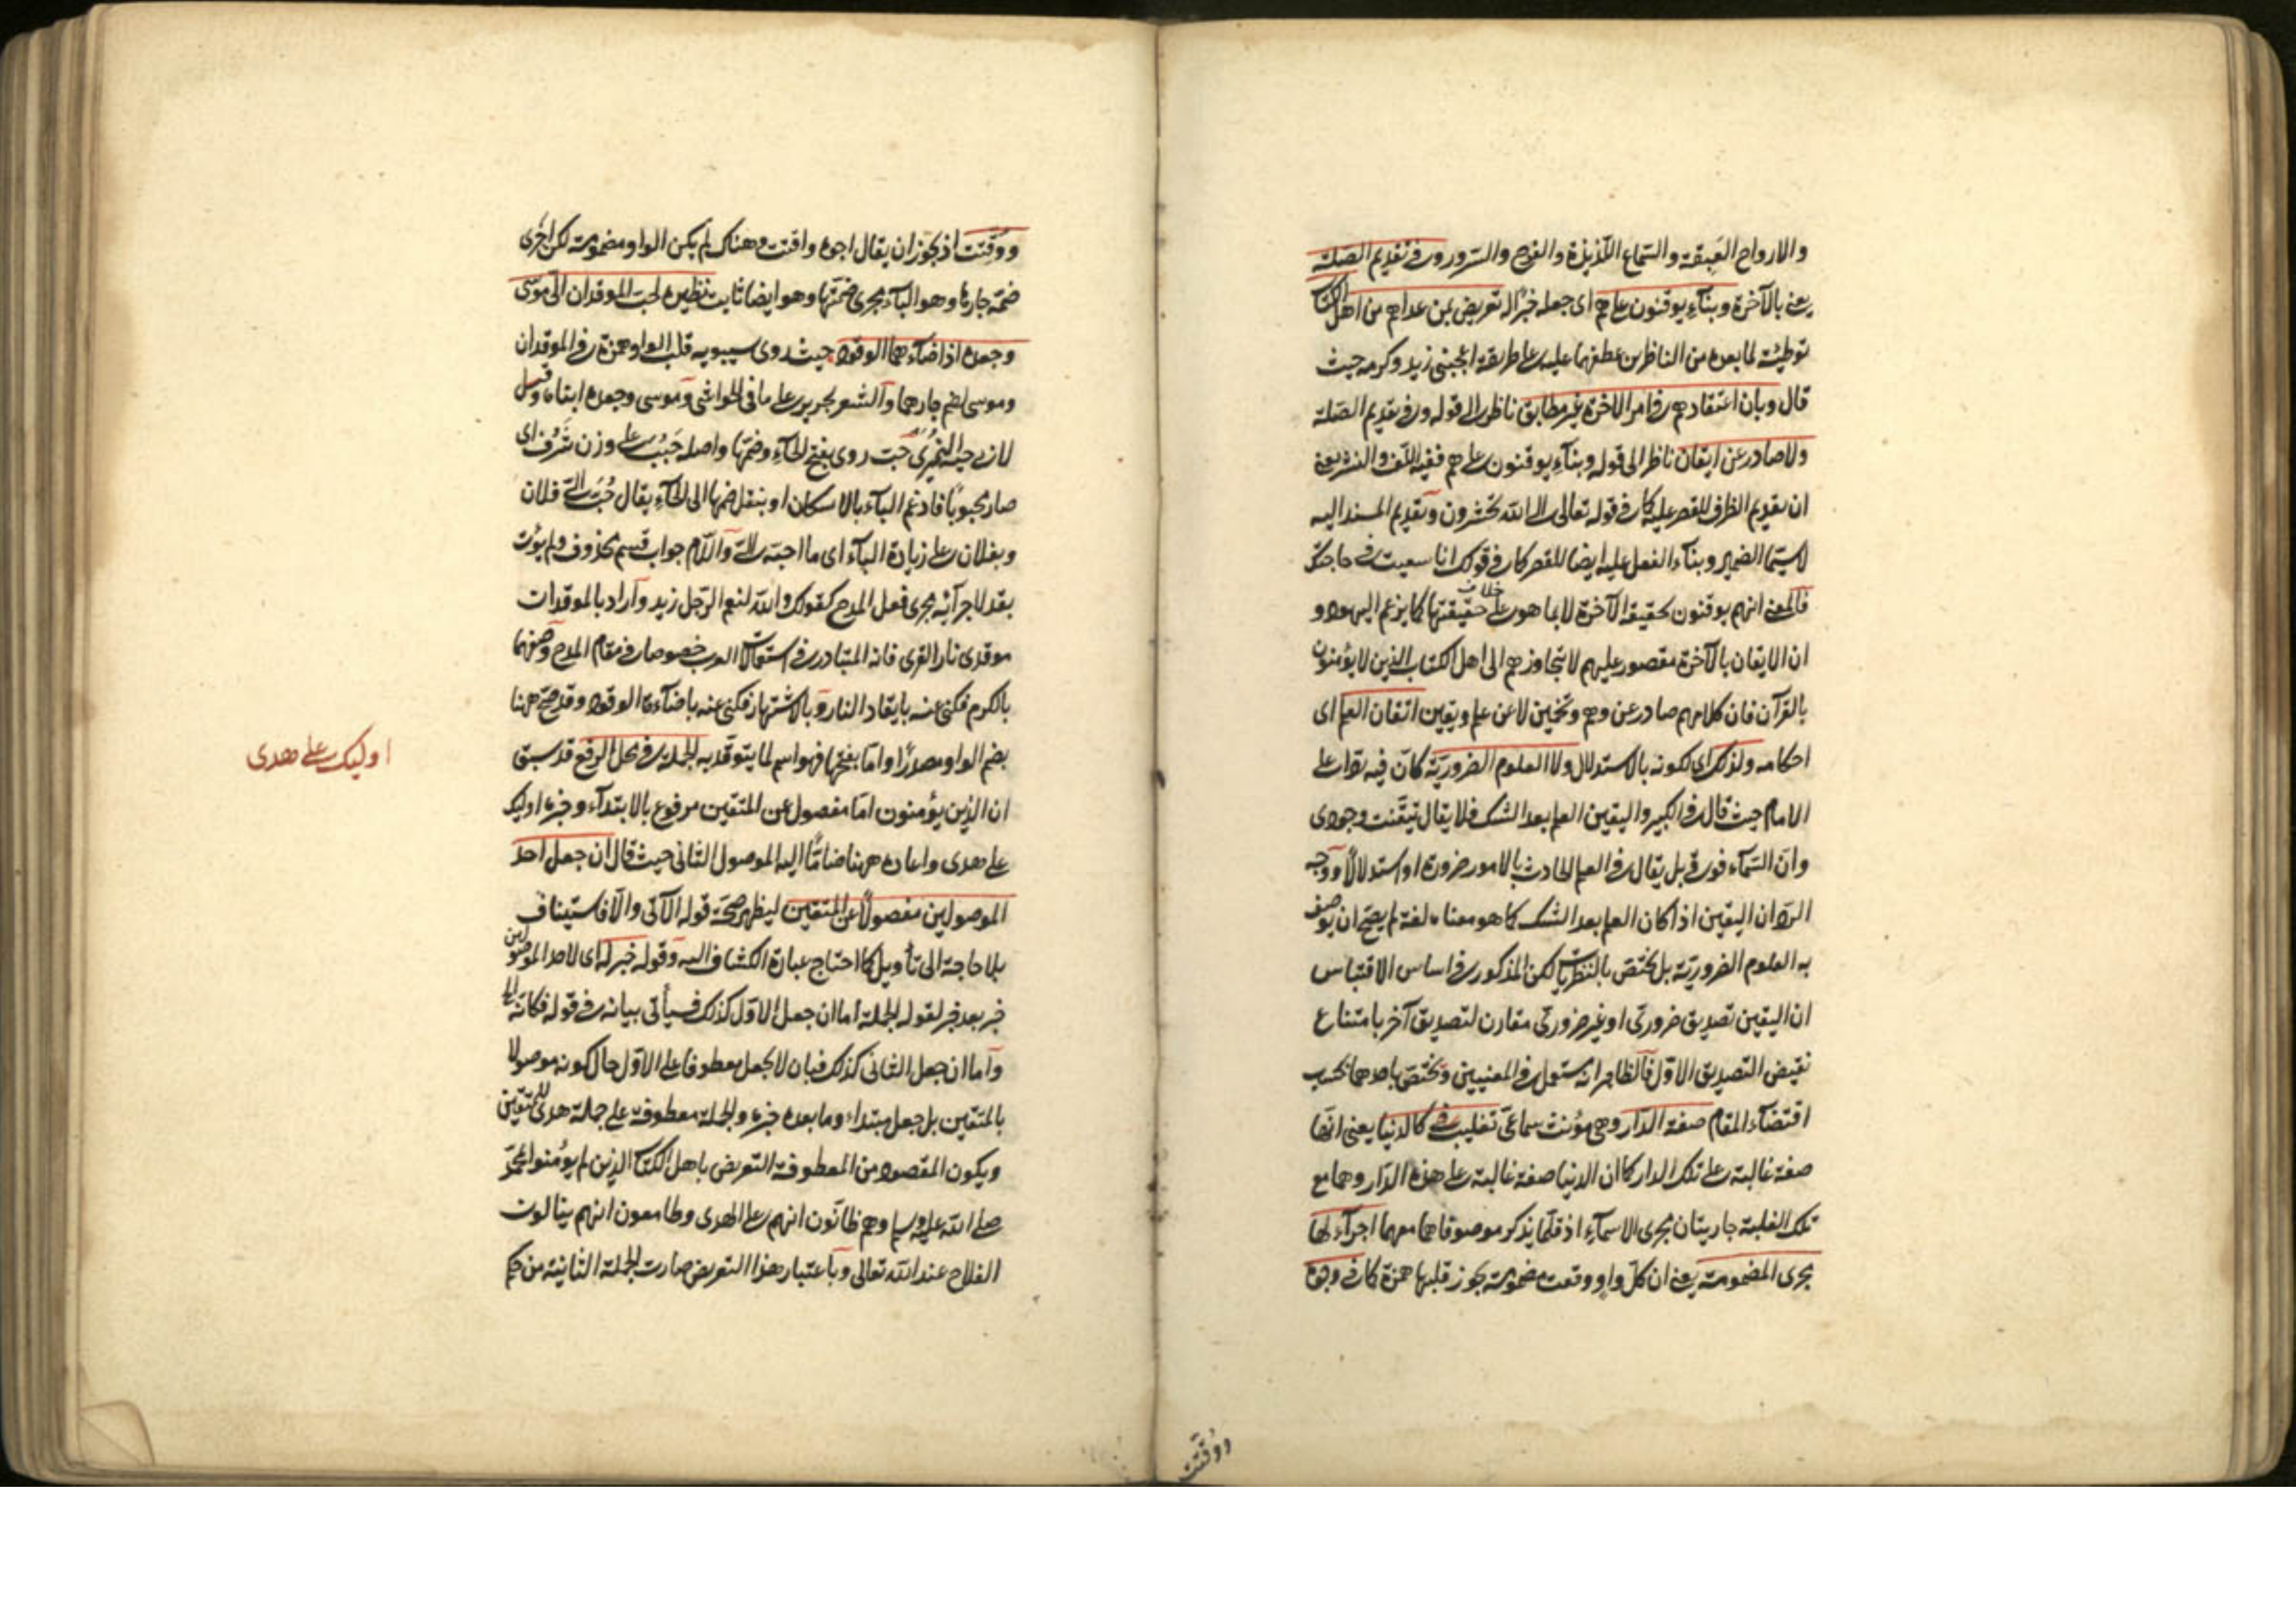 والارواح العبقة والسماع اللذيذة والفرح والسرور وفى تقديم الصلة
يعنى بالآخرة وبناء يوقنون على هم اى جعله خبرًا له تعريض بمن عداهم من اهل الكتاب
توطئة لما بعده من الناظرين عطفهما عليه على طريقة اعجبنى زيد وكرمه حيث
قال وبان اعتقادهم فى امر الآخرة غير مطابق ناظر الى قوله وفى تقديم الصلة
ولا صادر عن ايقان ناظر الى قوله وبناء يوقنون على هم ففيه اللف والنشر يعنى
ان تقديم الظرف للقصر عليه كما فى قوله تعالى لالى الله تحشرون وتقديم المسند اليه
لا سيما الضمير وبناء الفعل عليه ايضا للقصر كما فى قولك انا سعيت فى حاجتك
فالمعنى انهم يوقنون بحقيقة الآخرة لا بما هو على خلاف حقيقتها كما يزعم اليهود و
ان الايقان بالآخرة مقصور عليهم لا يتجاوزهم الى اهل الكتاب الذين لا يؤمنون
بالقرآن فان كلامهم صادر عن وهم وتخمين لا عن علم ويقين اتقان العلم اى
احكامه ولذلك اى لكونه بالاستدلال ولا العلوم الضرورية كان فيه ردا على
الامام حيث قال فى الكبير واليقين العلم بعد الشك فلا يقال تيقنت وجودى
وان السماء فوقى بل يقال فى العلم الحادث بالامور ضرورة او استدلالًا ووجه
الرد ان اليقين اذا كان العلم بعد الشك كما هو معناه لغة لم يصح ان يوصف
به العلوم الضرورية بل يختص بالنظريات لكن المذكور فى اساس الاقتباس
ان اليقين تصديق ضرورى او غير ضرورى مقارن لتصديق آخر بامتناع
نقيض التصديق الاول فالظاهر انه يستعمل فى المعنيين ويختص باحدهما بحسب
اقتضاء المقام صفة الدار وهى مؤنث سماعى تغليب فى كالدنيا يعنى انها
صفة غالبة على تلك الدار كما ان الدنيا صفة غالبة على هذه الدار وهما مع
تلك الغلبة جاريتان مجرى الاسماء اذ قلما يذكر موصوفاهما معهما اجراء لها
مجرى المضمومة يعنى ان كل واو وقعت مضمومة يجوز قلبها همزة كما فى وجوه
ووقتت
ووقتت اذ يجوز ان يقال اجوه واقتت وهناك لم يكن الواو مضمومة لكن اجرى
ضمة جارها وهو الياء مجرى ضمتها وهو ايضا ثابت نظيره لحب الموقدان الى موسى
وجعدة اذا اضاءهما الوقود حيث روى سيبويه قلب الواو همزة فى الموقدان
وموسى لضم جارهما والشعر لجرير على ما فى الحواشى وموسى وجعدة ابناه وقيل
لابى حية النميرى حب روى بفتح الحاء وضمها واصله حبب على وزن شرف اى
صار محبوبًا فادغم الباء بالاسكان او بنقل ضمها الى الحاء يقال حب الى فلان
وبفلان على زيادة الباء اى ما احبه الى واللام جواب قسم محذوف ولم يؤت
بقد لاجرائه مجرى فعل المدح كقولك والله لنعم الرجل زيد واراد بالموقدان
موقدى نار القرى فانه المتبادر فى استعمالات العرب خصوصا فى مقام المدح وصفهما
بالكرم فكنى عنه بايقاد النار وبالاشتهار فكنى عنه باضاءة الوقود وقد صح ههنا
بضم الواو مصدرًا واما بفتحها فهو اسم لما يتوقد به الجملة فى محل الرفع قد سبق
ان الذين يؤمنون اما مفصول عن المتقين مرفوع بالابتداء وخبره اوليك
على هدى واعاده ههنا ضامًا اليه الموصول الثانى حيث قال ان جعل احد
الموصولين مفصولًا عن المتقين ليظهر صحة قوله الآتى والا فاستيناف
بلا حاجة الى تأويل كما احتاج عبارة الكشاف اليه وقوله خبر له اى لاحد الموصولين
خبر بعد خبر لقوله الجملة اما ان جعل الاول كذلك فسيأتى بيانه فى قوله فكانه الخ
واما ان جعل الثانى كذلك فبان لا يجعل معطوفا على الاول حال كونه موصولا
بالمتقين بل جعل مبتداء وما بعده خبره والجملة معطوفة على جملة هدى للمتقين
ويكون المقصود من المعطوفة التعريض باهل الكتاب الذين لم يؤمنوا بمحمد
صلى الله عليه وسلم وهم ظانون انهم على الهدى وطامعون انهم ينالون
الفلاح عند الله تعالى وباعتبار هذا التعريض صارت الجملة الثانية من حكم
اوليك على هدى